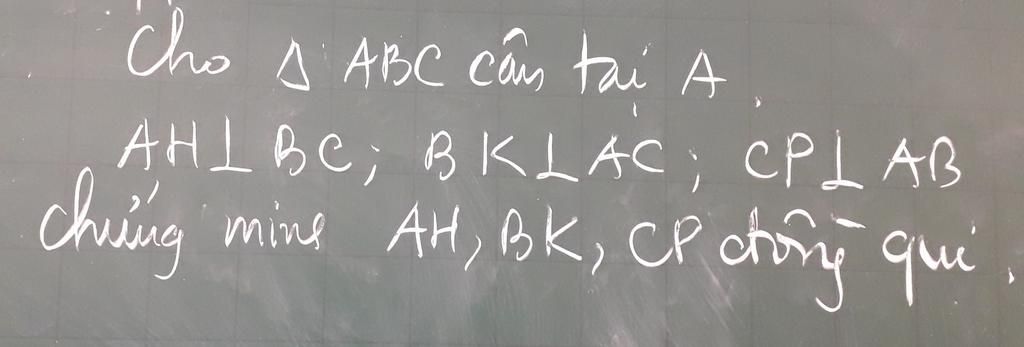 Cho Δ ABC cân tại A.
AH⊥BC; BK⊥AC; CP⊥AB
chứng minh AH, BK, CP đồng qui.